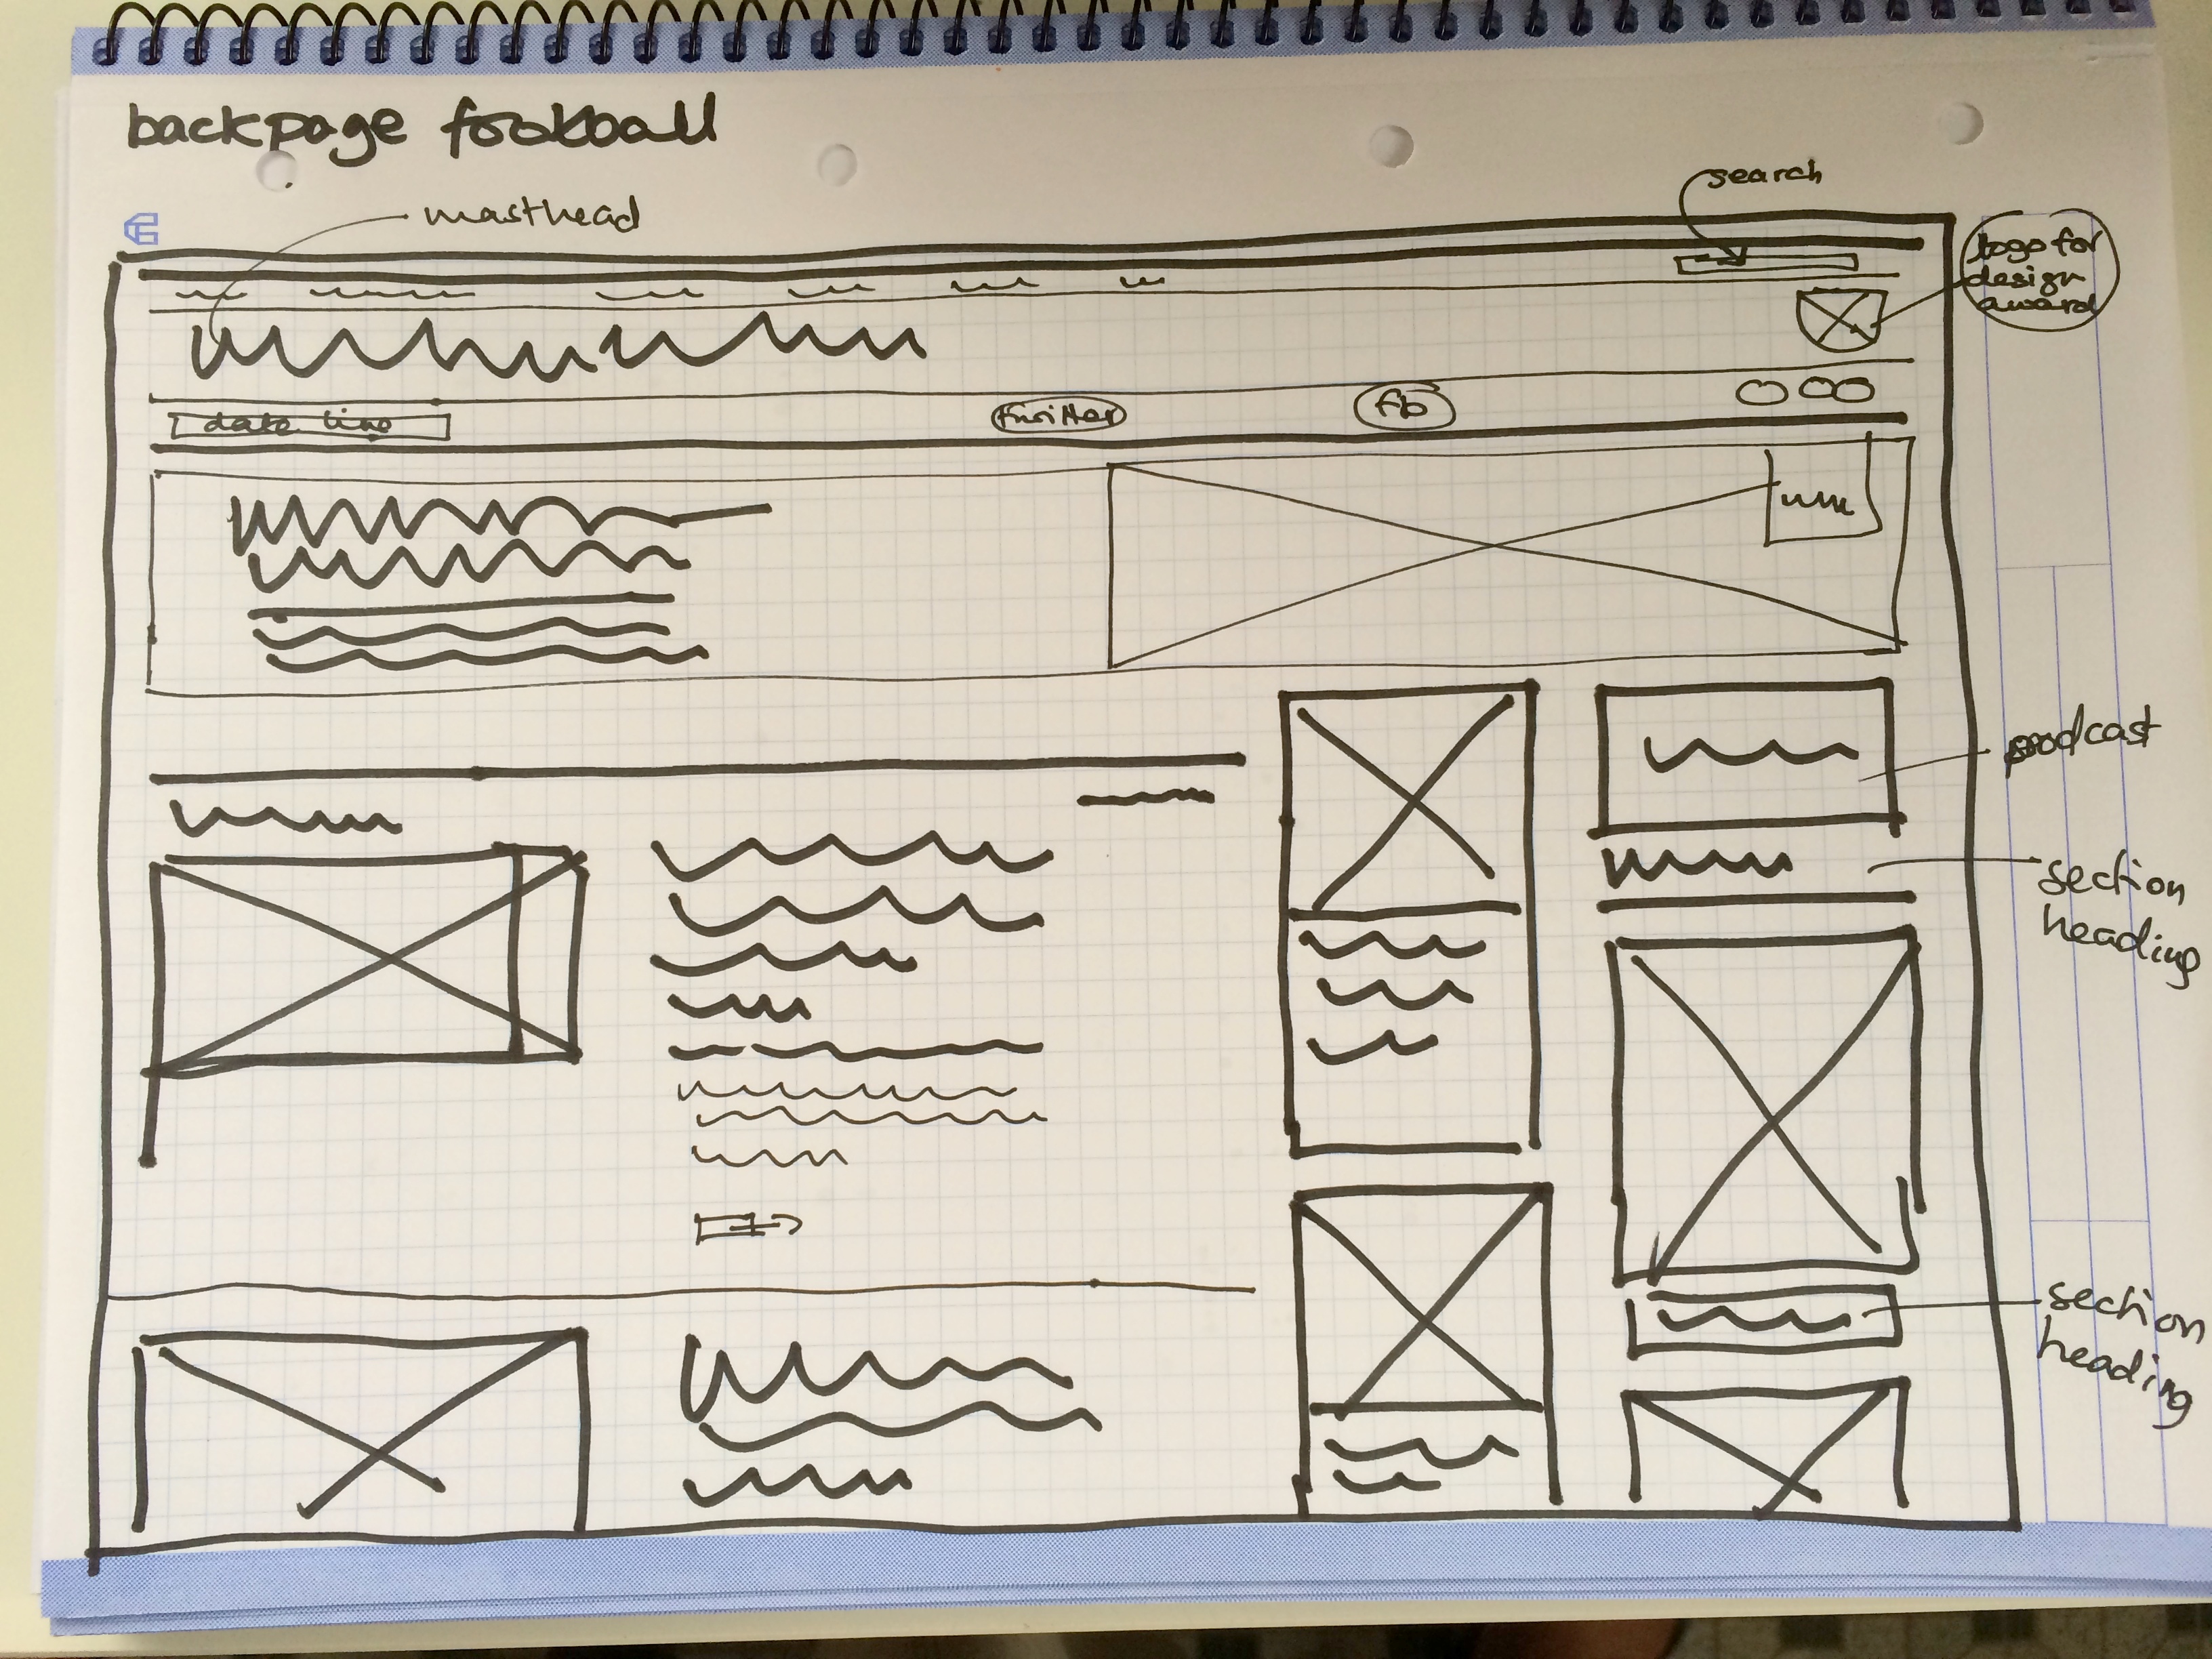 backpage football
search
masthead
logo for
design
award
date line
twitter
fb
podcast
section
heading
section
heading